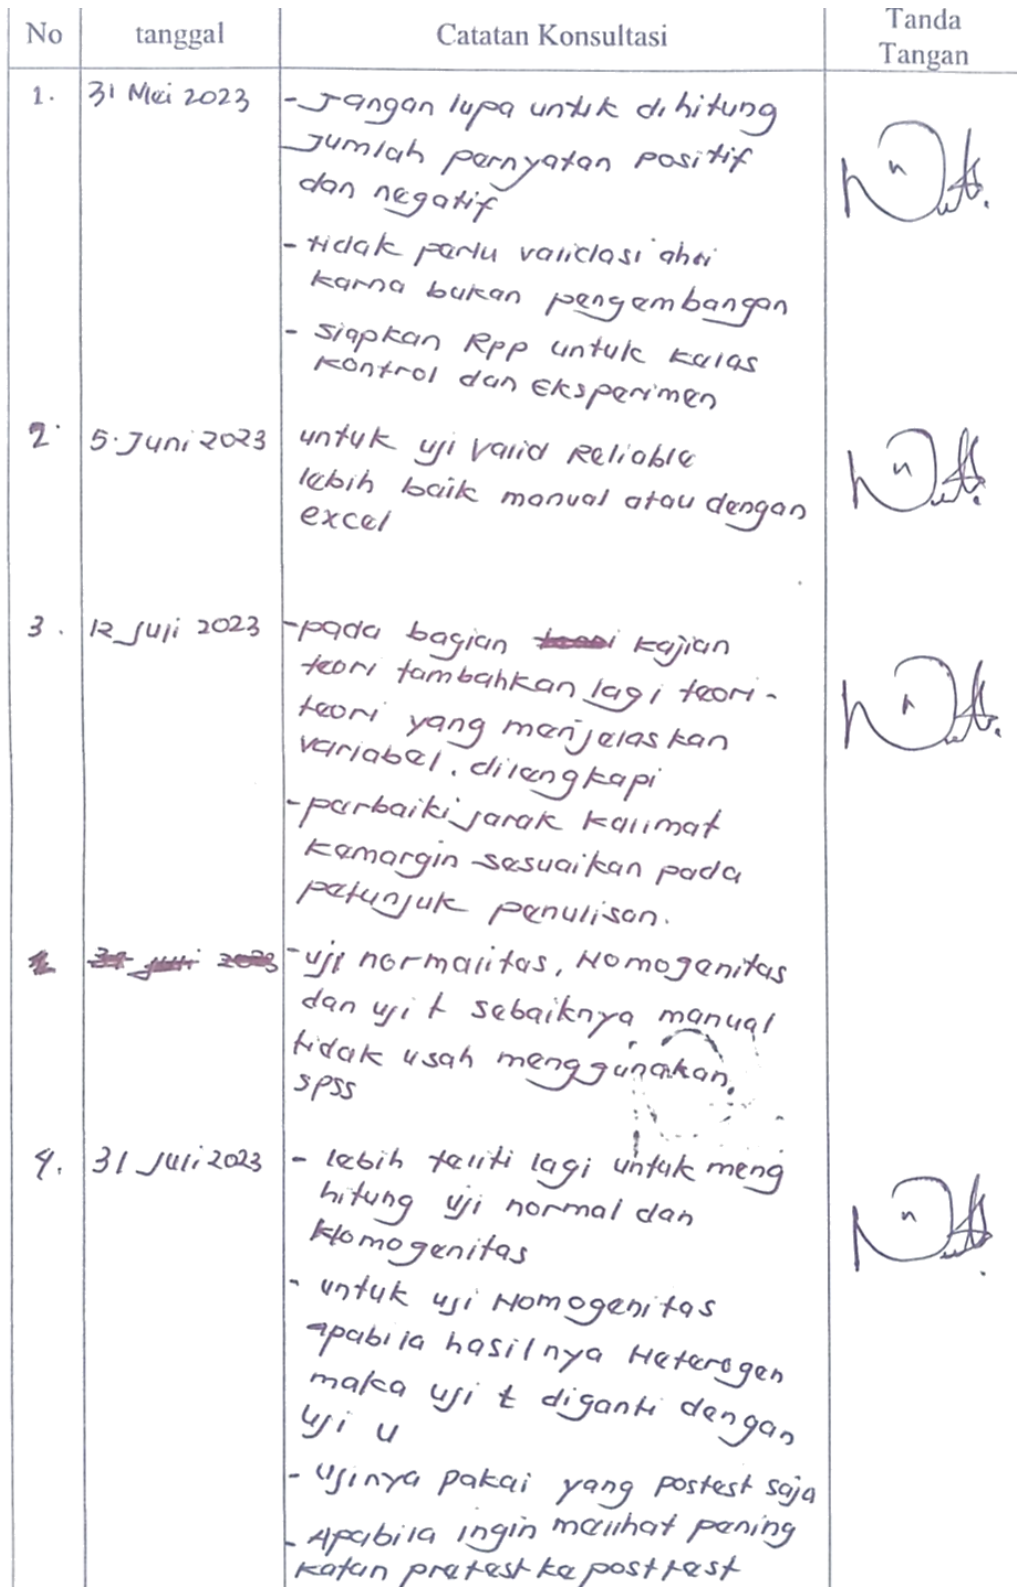 No tanggal Catatan Konsultasi Tanda Tangan
1. 31 Mei 2023 - Jangan lupa untuk dihitung
Jumlah pernyatan positif
dan negatif
- tidak perlu validasi ahli
karna bukan pengembangan
- siapkan RPP untuk kelas
kontrol dan Eksperimen
2. 5 Juni 2023 untuk uji valid Reliable
lebih baik manual atau dengan
excel
3. 12 Juli 2023 - pada bagian kajian
teori tambahkan lagi teori-
teori yang menjelaskan
variabel. dilengkapi
- perbaiki jarak kalimat
kemargin sesuaikan pada
petunjuk penulisan.
- uji normalitas, Homogenitas
dan uji t sebaiknya manual
tidak usah menggunakan
spss
4. 31 Juli 2023 - lebih teliti lagi untuk meng
hitung uji normal dan
Homogenitas
- untuk uji Homogenitas
apabila hasilnya Heterogen
maka uji t diganti dengan
uji u
- ujinya pakai yang postest saja
- Apabila ingin melihat pening
katan pretest ke posttest